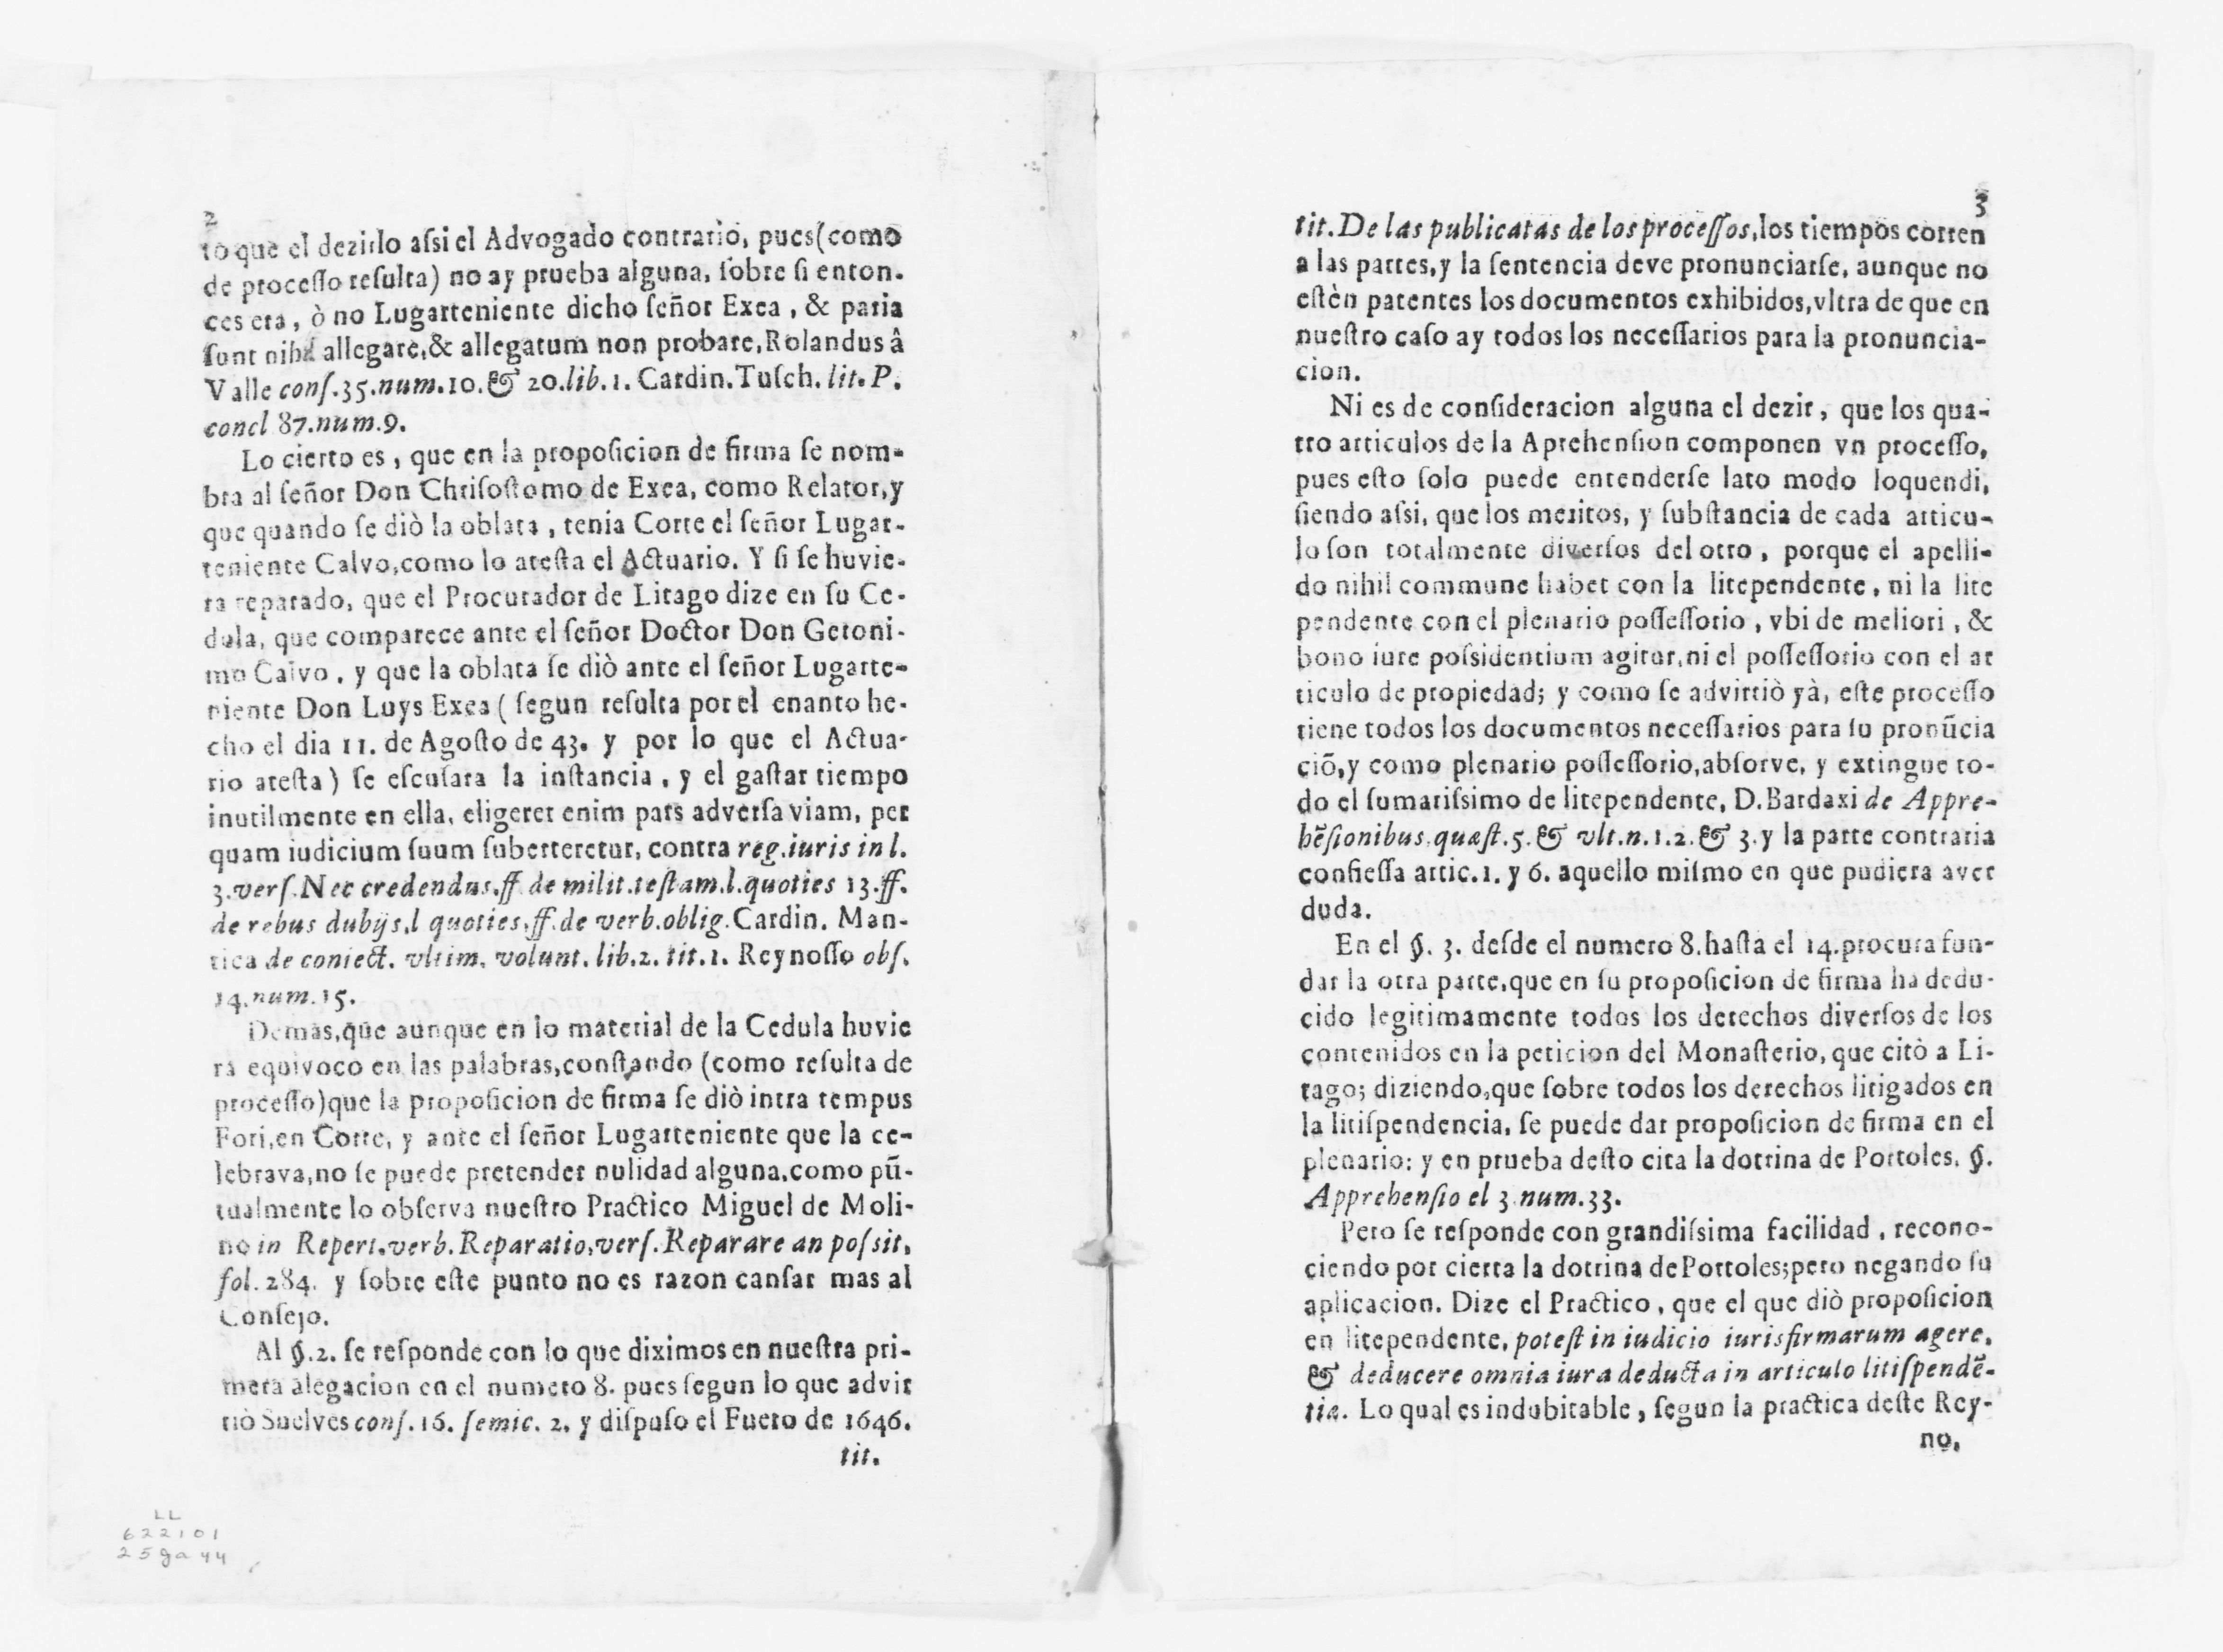 2
to que el dezirlo aſsi el Advogado contrario, pues (como
de proceſſo reſulta) no ay prueba alguna, ſobre ſi enton-
ces era, ò no Lugarteniente dicho ſeñor Exea, & paria
ſunt nihil allegare, & allegatum non probare, Rolandus â
Valle conſ. 35. num. 10. & 20. lib. 1. Cardin. Tuſch. lit. P.
concl 87. num. 9.
Lo cierto es, que en la propoſicion de firma ſe nom-
bra al ſeñor Don Chriſoſtomo de Exea, como Relator, y
que quando ſe diò la oblata, tenia Corte el ſeñor Lugar-
teniente Calvo, como lo ateſta el Actuario. Y ſi ſe huvie-
ra reparado, que el Procurador de Litago dize en ſu Ce-
dula, que comparece ante el ſeñor Doctor Don Geroni-
mo Calvo, y que la oblata ſe diò ante el ſeñor Lugarte-
niente Don Luys Exea (ſegun reſulta por el enanto he-
cho el dia 11. de Agoſto de 43. y por lo que el Actua-
rio ateſta) ſe eſcuſara la inſtancia, y el gaſtar tiempo
inutilmente en ella, eligeret enim pars adverſa viam, per
quam iudicium ſuum ſuberteretur, contra reg. iuris in l.
3. verſ. Nec credendus, ff. de milit. teſtam. l. quoties 13. ff.
de rebus dubijs, l quoties, ff. de verb. oblig. Cardin. Man-
tica de coniect. vltim. volunt. lib. 2. tit. 1. Reynoſſo obſ.
14. num. 15.
Demas, que aunque en lo material de la Cedula huvie
ra equivoco en las palabras, conſtando (como reſulta de
proceſſo) que la propoſicion de firma ſe diò intra tempus
Fori, en Corte, y ante el ſeñor Lugarteniente que la ce-
lebrava, no ſe puede pretender nulidad alguna, como pũ-
tualmente lo obſerva nueſtro Practico Miguel de Moli-
no in Repert. verb. Reparatio, verſ. Reparare an poſsit,
fol. 284. y ſobre eſte punto no es razon canſar mas al
Conſejo.
Al §. 2. ſe reſponde con lo que diximos en nueſtra pri-
mera alegacion en el numero 8. pues ſegun lo que advir
tiò Suelves conſ. 16. ſemic. 2. y diſpuſo el Fuero de 1646.
tit.
LL
622101
25ga44
3
tit. De las publicatas de los proceſſos, los tiempos corren
a las partes, y la ſentencia deve pronunciarſe, aunque no
eſtèn patentes los documentos exhibidos, vltra de que en
nueſtro caſo ay todos los neceſſarios para la pronuncia-
cion.
Ni es de conſideracion alguna el dezir, que los qua-
tro articulos de la Aprehenſion componen vn proceſſo,
pues eſto ſolo puede entenderſe lato modo loquendi,
ſiendo aſsi, que los meritos, y ſubſtancia de cada articu-
lo ſon totalmente diverſos del otro, porque el apelli-
do nihil commune habet con la litependente, ni la lite
pendente con el plenario poſſeſſorio, vbi de meliori, &
bono iure poſsidentium agitur, ni el poſſeſſorio con el ar
ticulo de propiedad; y como ſe advirtiò yà, eſte proceſſo
tiene todos los documentos neceſſarios para ſu pronũcia
ciõ, y como plenario poſſeſſorio, abſorve, y extingue to-
do el ſumariſsimo de litependente, D. Bardaxi de Appre-
hẽſionibus quæſt. 5. & vlt. n. 1. 2. & 3. y la parte contraria
confieſſa artic. 1. y 6. aquello miſmo en que pudiera aver
duda.
En el §. 3. deſde el numero 8. haſta el 14. procura fun-
dar la otra parte, que en ſu propoſicion de firma ha dedu-
cido legitimamente todos los derechos diverſos de los
contenidos en la peticion del Monaſterio, que citò a Li-
tago; diziendo, que ſobre todos los derechos litigados en
la litiſpendencia, ſe puede dar propoſicion de firma en el
plenario: y en prueba deſto cita la dotrina de Portoles, §.
Apprehenſio el 3. num. 33.
Pero ſe reſponde con grandiſsima facilidad, recono-
ciendo por cierta la dotrina de Portoles; pero negando ſu
aplicacion. Dize el Practico, que el que diò propoſicion
en litependente, poteſt in iudicio iurisfirmarum agere,
& deducere omnia iura deducta in articulo litiſpendẽ-
tiæ. Lo qual es indubitable, ſegun la practica deſte Rey-
no,